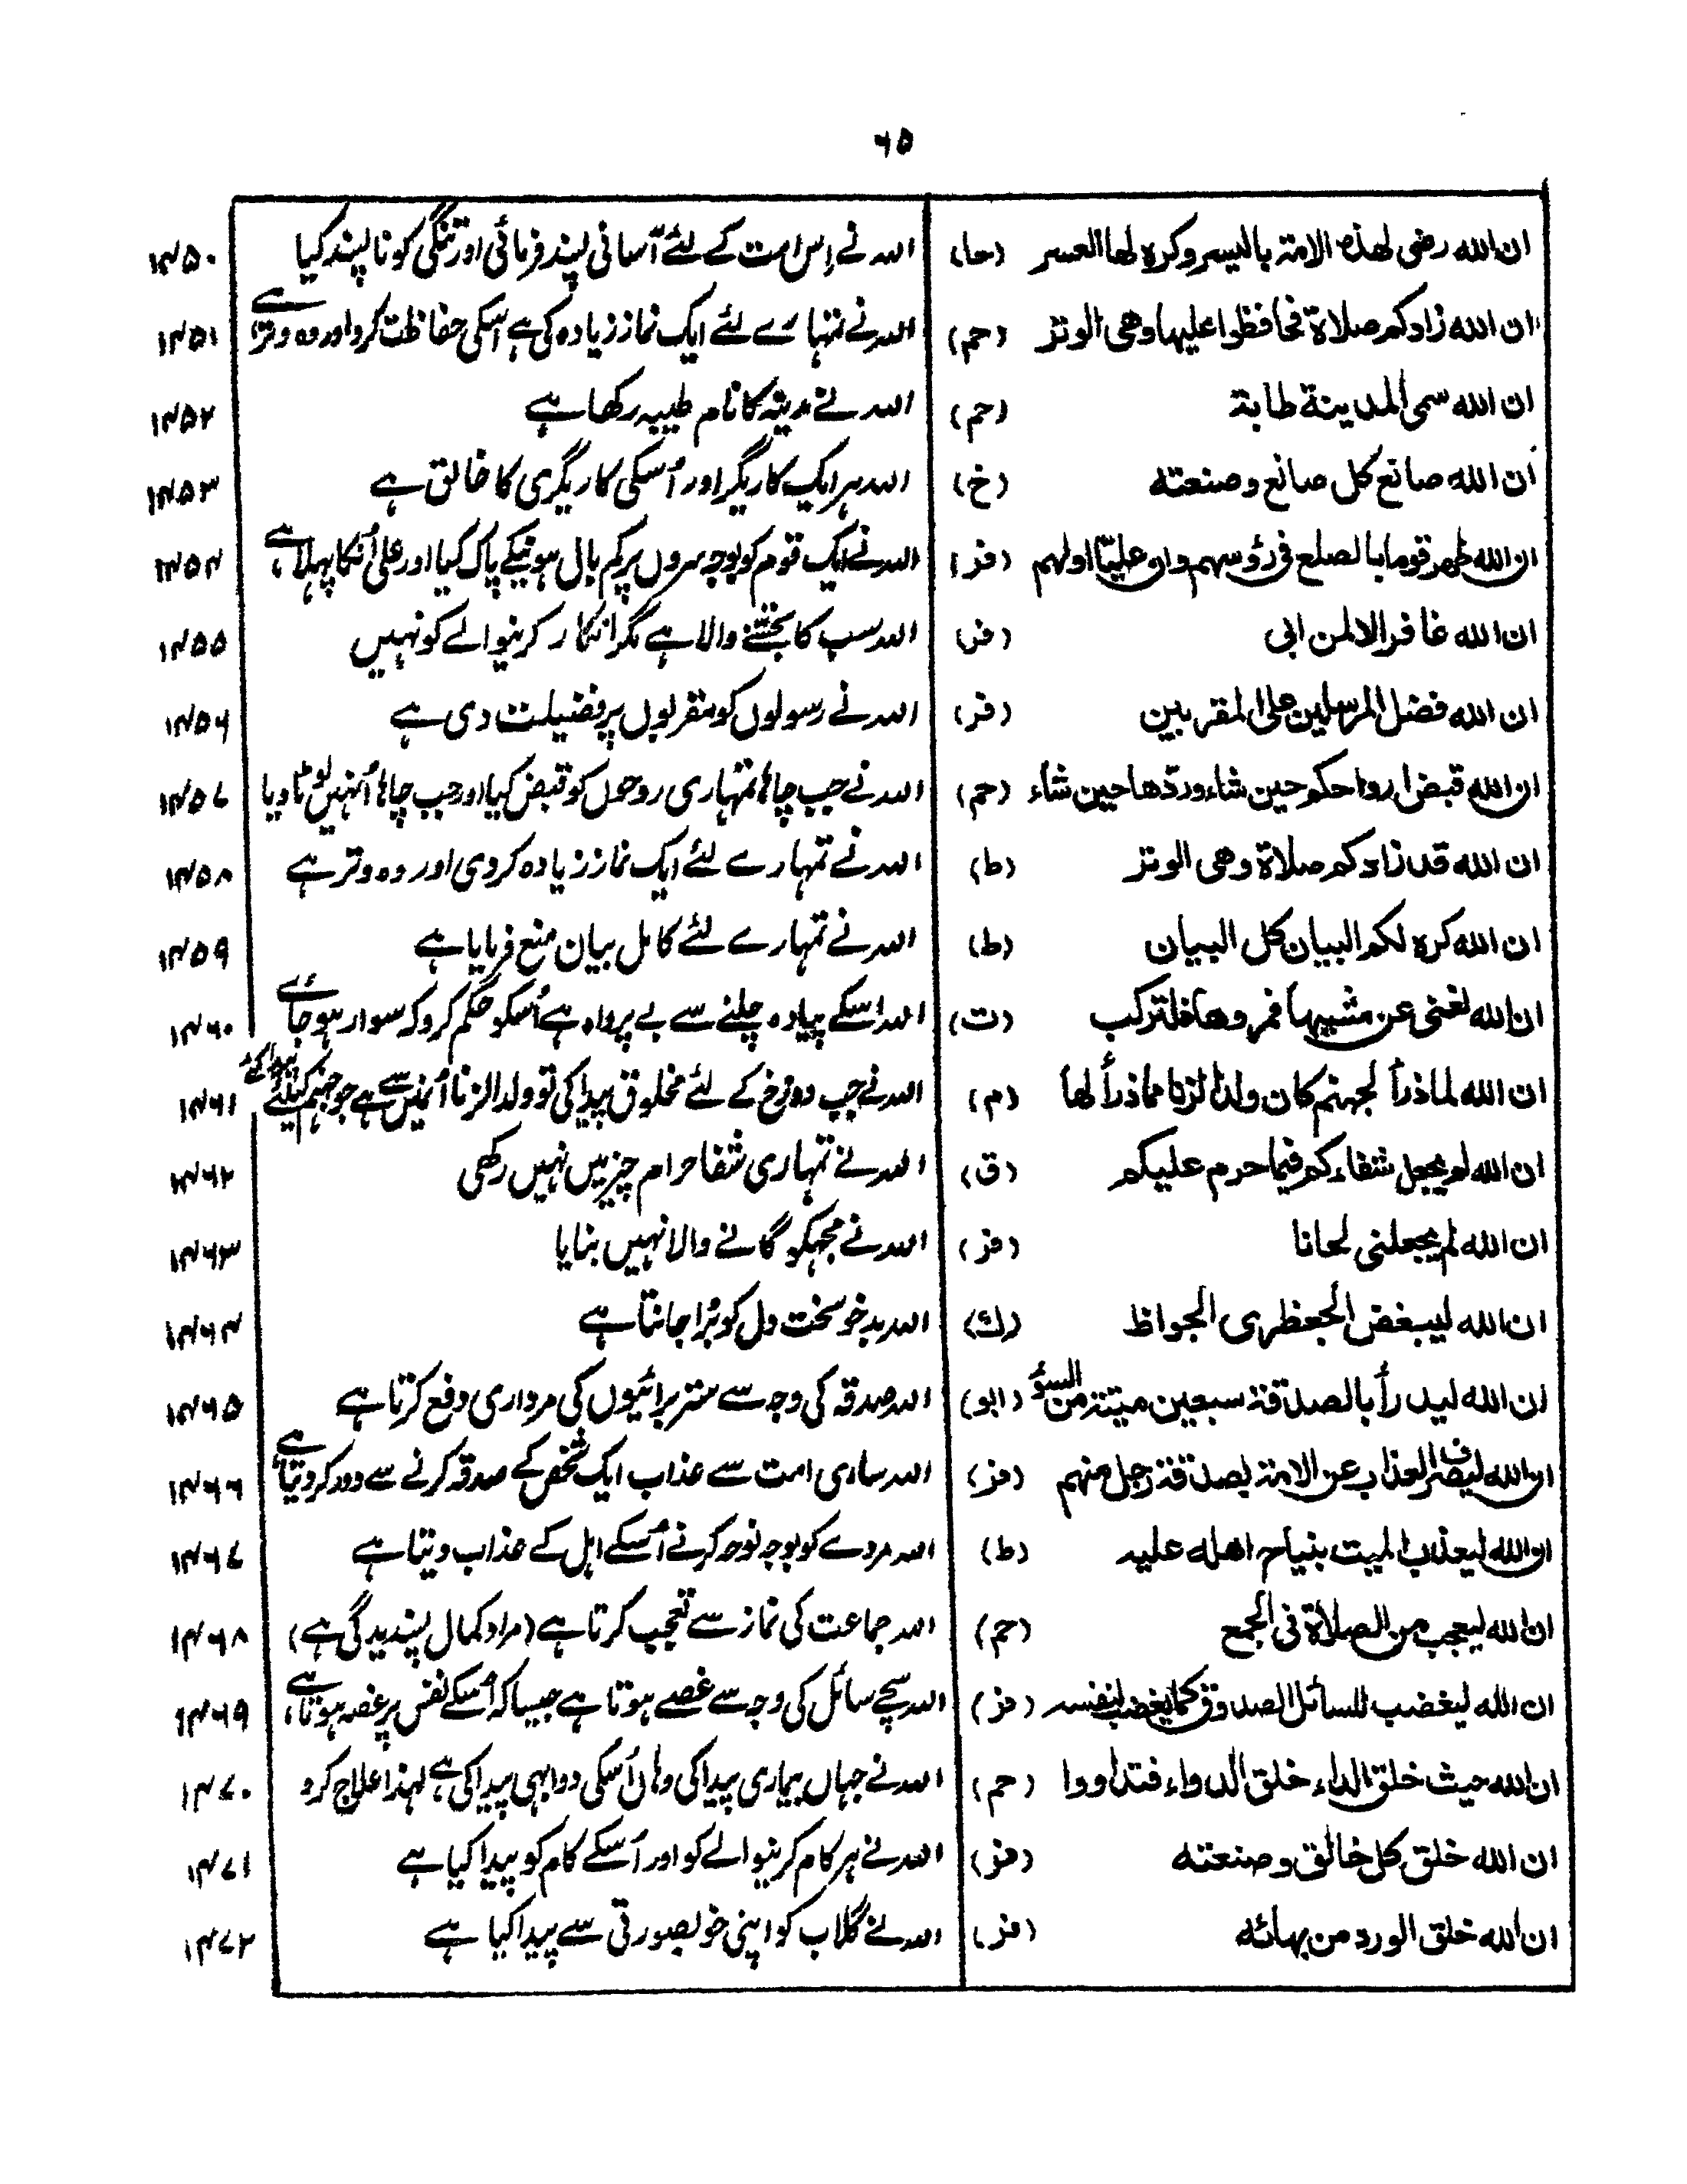 ٦٥
ان الله رضی لهذه الامة بالیسر وکره لها العسر (حا) اللہ نے اِس امت کے لئے آسانی پسند فرمائی اور تنگی کو نا پسند کیا ۱۴۵۰
ان الله زادکم صلاة فحافظوا علیها وهی الوتر (حم) اللہ نے تمہارے لئے ایک نماز زیادہ کی ہے اسکی حفاظت کرو اور وہ وتر ہے ۱۴۵۱
ان الله سمی المدینة طابة (حم) اللہ نے مدینہ کا نام طیبہ رکھا ہے ۱۴۵۲
ان الله صانع کل صانع وصنعته (خ) اللہ ہر ایک کاریگر اور اُسکی کاریگری کا خالق ہے ۱۴۵۳
ان الله طهر قوما بالصلع فی رؤسهم وان علیّا اولهم (فر) اللہ نے ایک قوم کو بوجہ سروں پر کم بال ہونیکے پاک کیا اور علی اُنکا پہلا ہے ۱۴۵۴
ان الله غافر الا لمن ابی (فر) اللہ سب کا بخشنے والا ہے مگر انکار کرنیوالے کو نہیں ۱۴۵۵
ان الله فضل المرسلین علی المقربین (فر) اللہ نے رسولوں کو مقربوں پر فضیلت دی ہے ۱۴۵۶
ان الله قبض ارواحکم حین شاء وردّها حین شاء (حم) اللہ نے جب چاہا تمہاری روحوں کو قبض کیا اور جب چاہا اُنہیں لوٹا دیا ۱۴۵۷
ان الله قد زادکم صلاة وهی الوتر (ط) اللہ نے تمہارے لئے ایک نماز زیادہ کردی اور وہ وتر ہے ۱۴۵۸
ان الله کره لکم البیان کل البیان (ط) اللہ نے تمہارے لئے کامل بیان منع فرمایا ہے ۱۴۵۹
ان الله لغنی عن مشیها فمروها فلترکب (ت) اللہ اسکے پیادہ چلنے سے بے پرواہ ہے اُسکو حکم کرو کہ سوار ہو جائے ۱۴۶۰
ان الله لما ذرأ لجهنم کان ولد الزنا مما ذرأ لها (م) اللہ نے جب دوزخ کے لئے مخلوق پیدا کی تو ولد الزنا اُنمیں سے ہے جو جہنم کیلئے پیدا کئے ۱۴۶۱
ان الله لم یجعل شفاءکم فیما حرم علیکم (ق) اللہ نے تمہاری شفا حرام چیز میں نہیں رکھی ۱۴۶۲
ان الله لم یجعلنی لحانا (فر) اللہ نے مجہکو گانے والا نہیں بنایا ۱۴۶۳
ان الله لیبغض الجعظری الجواظ (ك) اللہ بدخو سخت دل کو بُرا جانتا ہے ۱۴۶۴
ان الله لیدرأ بالصدقة سبعین میتة من السوٴ (ابو) اللہ صدقہ کی وجہ سے ستر برائیوں کی مرداری دفع کرتا ہے ۱۴۶۵
ان الله لیصرف العذاب عن الامة بصدقة رجل منهم (فر) اللہ ساری امت سے عذاب ایک شخص کے صدقہ کرنے سے دور کر دیتا ہے ۱۴۶۶
ان الله لیعذب المیت بنیاح اهله علیه (ط) اللہ مردے کو بوجہ نوحہ کرنے اُسکے اہل کے عذاب دیتا ہے ۱۴۶۷
ان الله لیعجب من الصلاة فی الجمع (حم) اللہ جماعت کی نماز سے تعجب کرتا ہے (مراد کمال پسندیدگی ہے) ۱۴۶۸
ان الله لیغضب للسائل الصدوق کما یغضب لنفسه (فر) اللہ سچے سائل کی وجہ سے غصے ہوتا ہے جیسا کہ اُسکے نفس پر غصہ ہوتا ہے ۱۴۶۹
ان الله حیث خلق الداء خلق الدواء فتداووا (حم) اللہ نے جہاں بیماری پیدا کی وہاں اُسکی دوا بھی پیدا کی ہے لہذا علاج کرو ۱۴۷۰
ان الله خلق کل خالق وصنعته (فر) اللہ نے ہر کام کرنیوالے کو اور اُسکے کام کو پیدا کیا ہے ۱۴۷۱
ان الله خلق الورد من بهائه (فر) اللہ نے گلاب کو اپنی خوبصورتی سے پیدا کیا ہے ۱۴۷۲